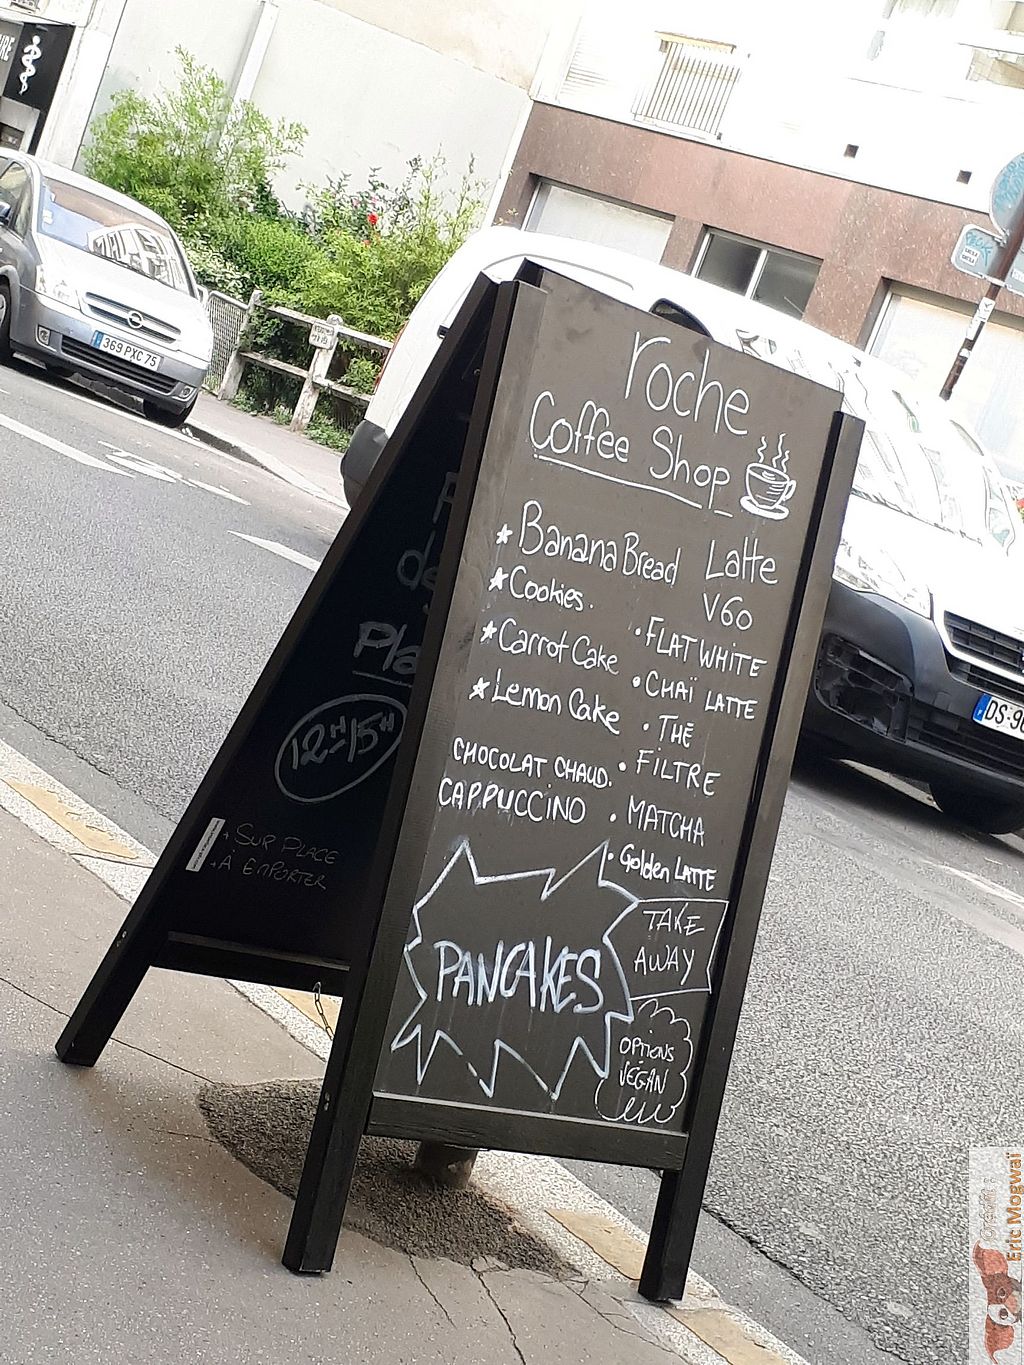 roche
Coffee Shop
★ Banana Bread
★ Cookies.
★ Carrot Cake
★ Lemon Cake
CHOCOLAT CHAUD.
CAPPUCCINO
Latte
V60
• FLAT WHITE
• CHAÏ LATTE
• THÉ
• FILTRE
• MATCHA
• Golden LATTE
PANCAKES
TAKE
AWAY
OPTIONS
VEGAN
Pla
12H-15H
+ SUR PLACE
+ A EMPORTER
369 PXC 75
DS-9
Eric Mogwaï